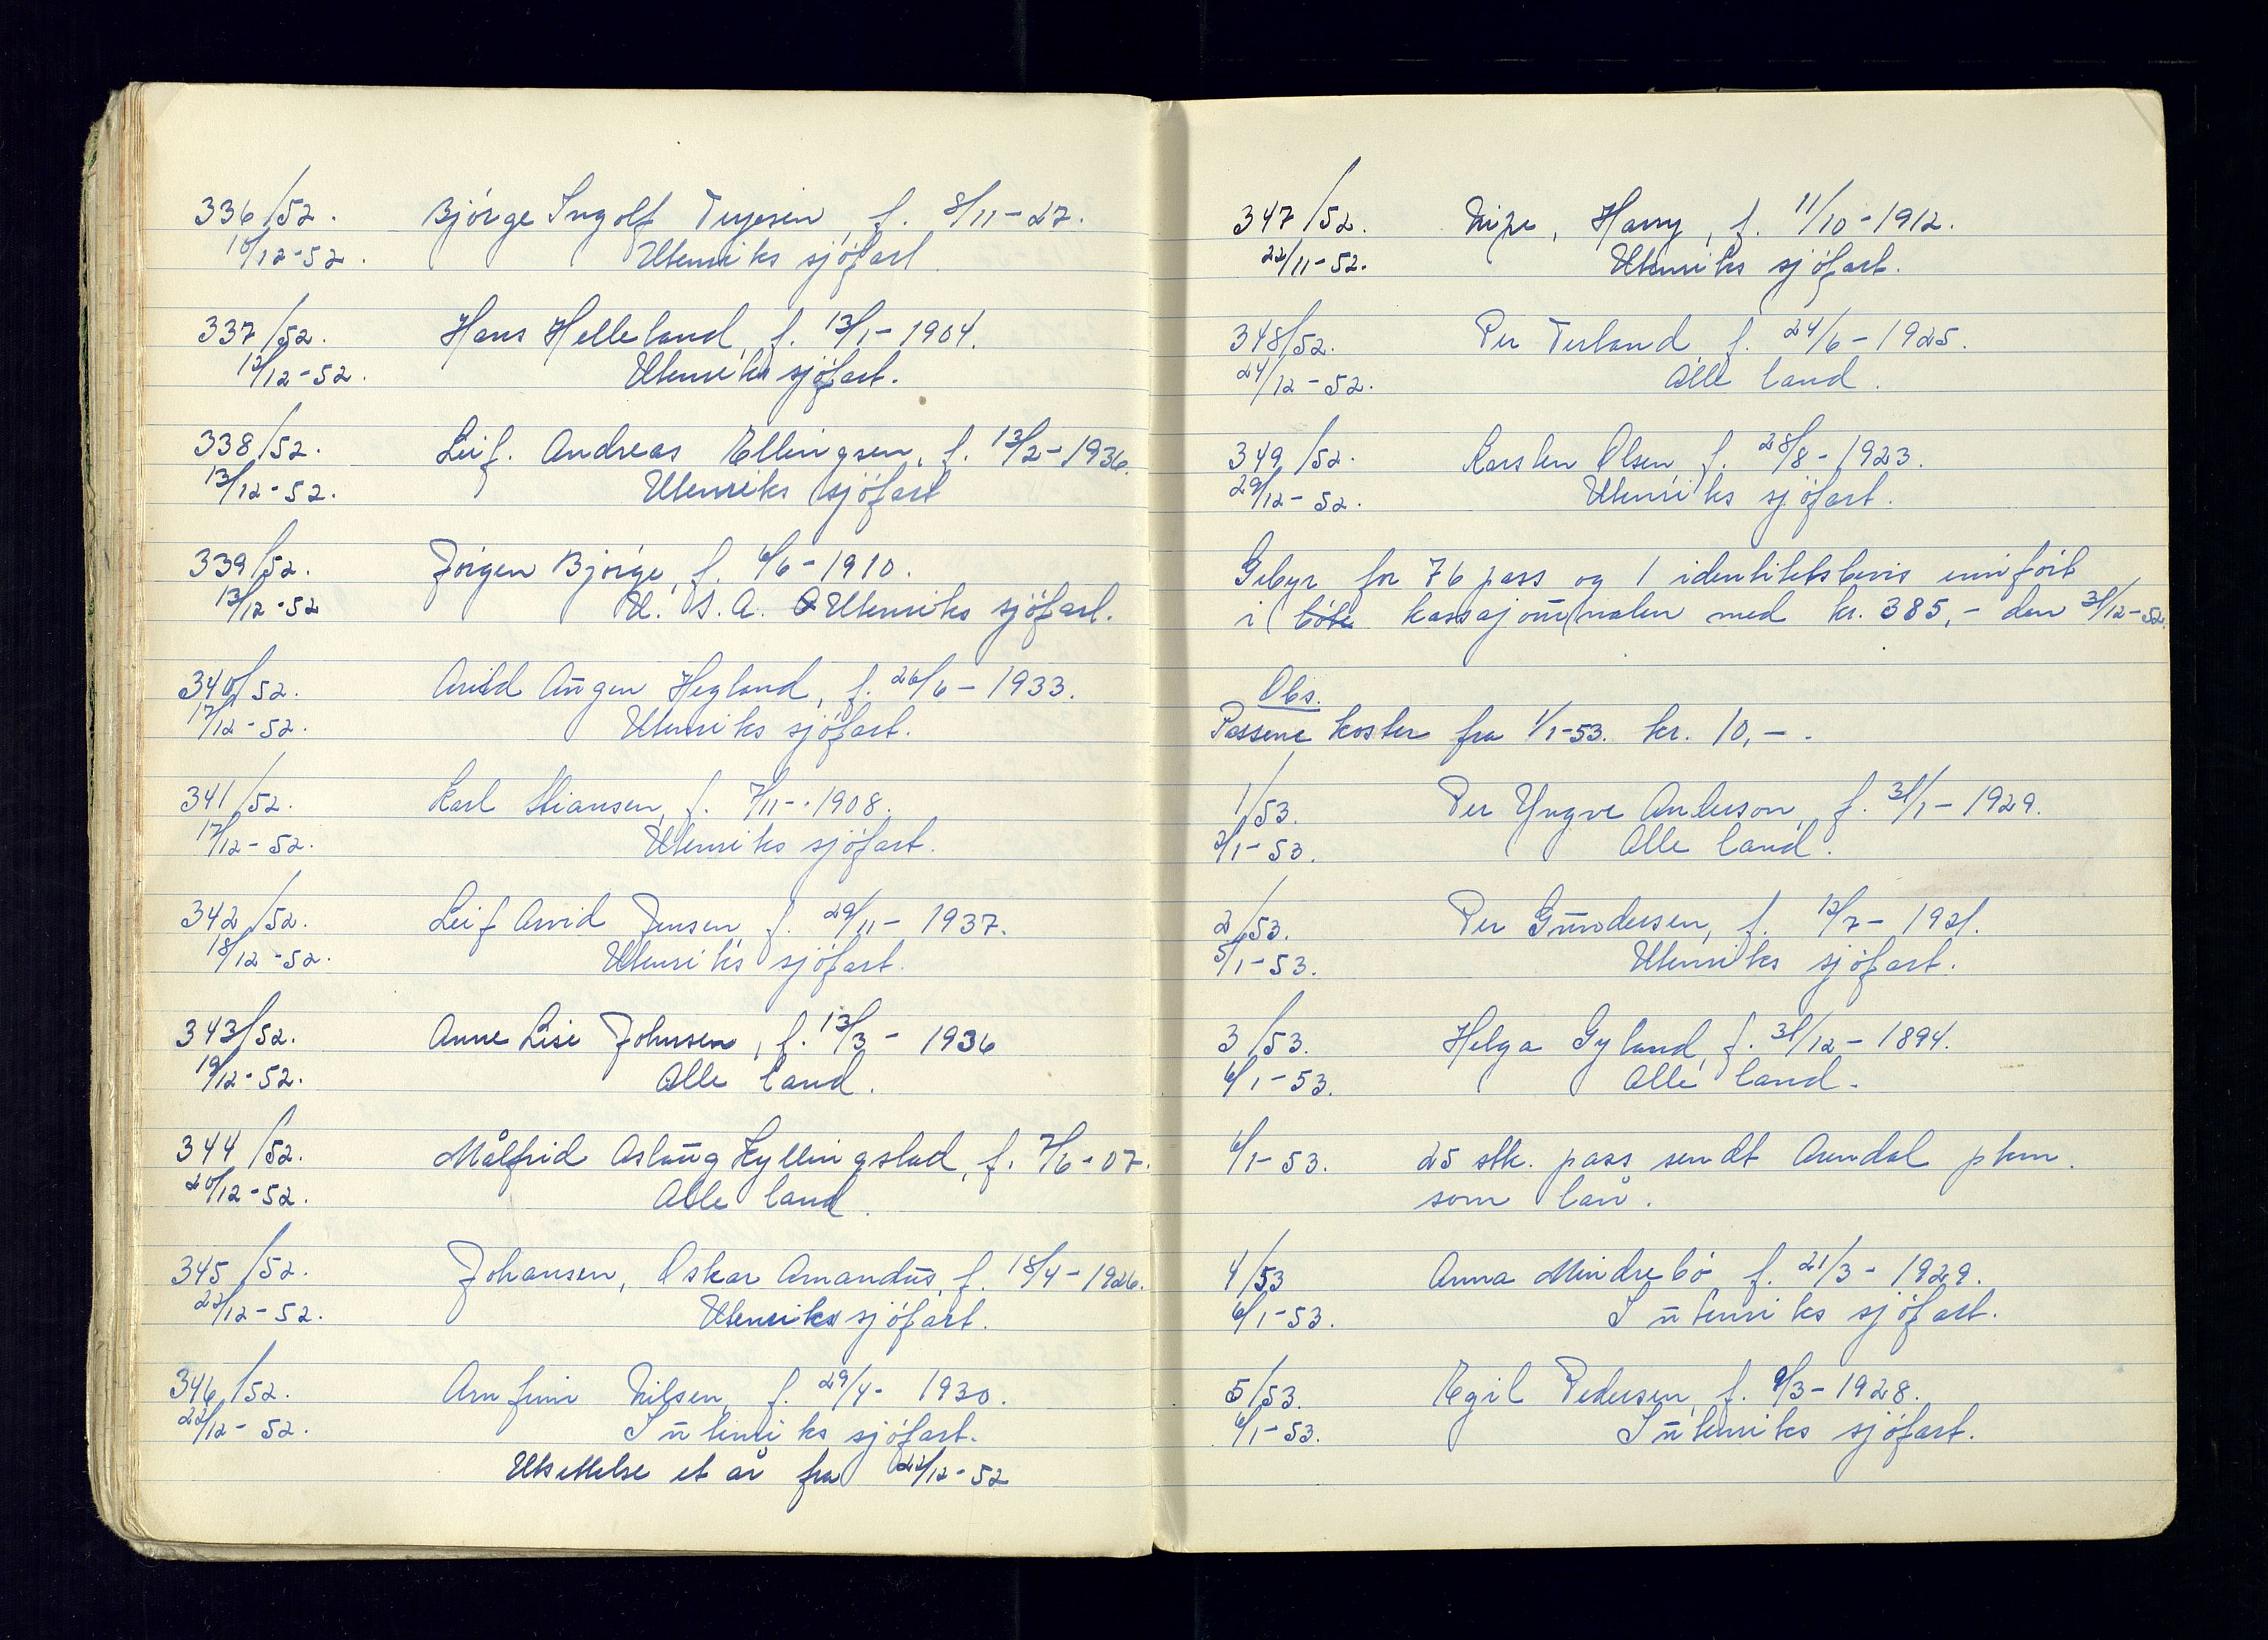 336/52. Bjørge Ingolf Terjesen, f. 8/11-27.
10/12-52. Utenriks sjøfart
337/52. Hans Helleland, f. 13/1-1904.
12/12-52. Utenriks sjøfart.
338/52. Leif. Andreas Ellingsen, f. 13/2-1936.
13/12-52. Utenriks sjøfart
339/52. Jørgen Bjørge, f. 6/6-1910.
13/12-52 U. S. A. Utenriks sjøfart.
340/52. Arild Aūgen Hegland, f. 26/6-1933.
17/12-52. Utenriks sjøfart.
341/52. Karl Stiansen, f. 7/11-1908.
17/12-52. Utenriks sjøfart.
342/52. Leif Arvid Jensen f. 29/11-1937.
18/12-52. Utenriks sjøfart.
343/52. Anne Lise Johnsen, f. 13/3-1936
19/12-52. Alle land.
344/52. Målfrid Aslaūg Kyllingstad, f. 7/6-07.
20/12-52. Alle land.
345/52. Johansen, Oskar Amandūs, f. 18/4-1926.
22/12-52. Utenriks sjøfart.
346/52. Arnfinn Nilsen, f. 29/4-1930.
22/12-52. I ūtenriks sjøfart.
Utsettelse et år fra 22/12-52
347/52. Nipe, Harry, f. 11/10-1912.
22/11-52. Utenriks sjøfart.
348/52. Per Terland f. 24/6-1925.
24/12-52. Alle land.
349/52. Karsten Olsen, f. 28/8-1923.
29/12-52. Utenriks sjøfart.
Gebyr for 76 pass og 1 identitetsbevis innført
i bøte kassajoūrnalen med kr. 385,- den 31/12-52.
Obs.
Passene koster fra 1/1-53. kr. 10,-.
1/53. Per Yngve Anderson, f. 31/1-1929.
2/1-53. Alle land.
2/53. Per Gūndersen, f. 12/7-1921.
5/1-53. Utenriks sjøfart.
3/53. Helga Gyland, f. 31/12-1894.
6/1-53. Alle land.
6/1-53. 25 stk. pass sendt Arendal pkm.
som lån.
4/53 Anna Mindrebø f. 21/3-1929.
6/1-53. I ūtenriks sjøfart.
5/53. Egil Pedersen, f. 9/3-1928.
6/1-53. I ūtenriks sjøfart.